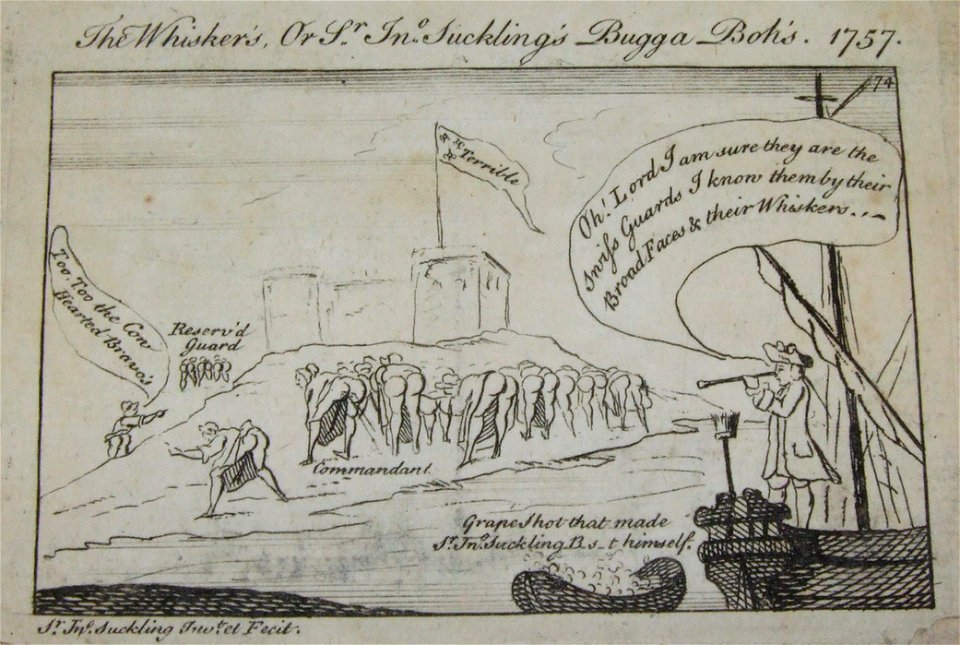 The Whisker's, Or Sr. Jno. Suckling's Bugga Boh's. 1757.
74
Terrible
Oh! Lord I am sure they are the
Swiss Guards I know them by their
Broad Faces & their Whiskers...
Too, Too the Cow
Hearted Bravo's
Reserv'd
Guard
Commandant
Grape Shot that made
Sr. Jno. Suckling B.s_t himself.
Sr. Jno. Suckling Invt. et Fecit.